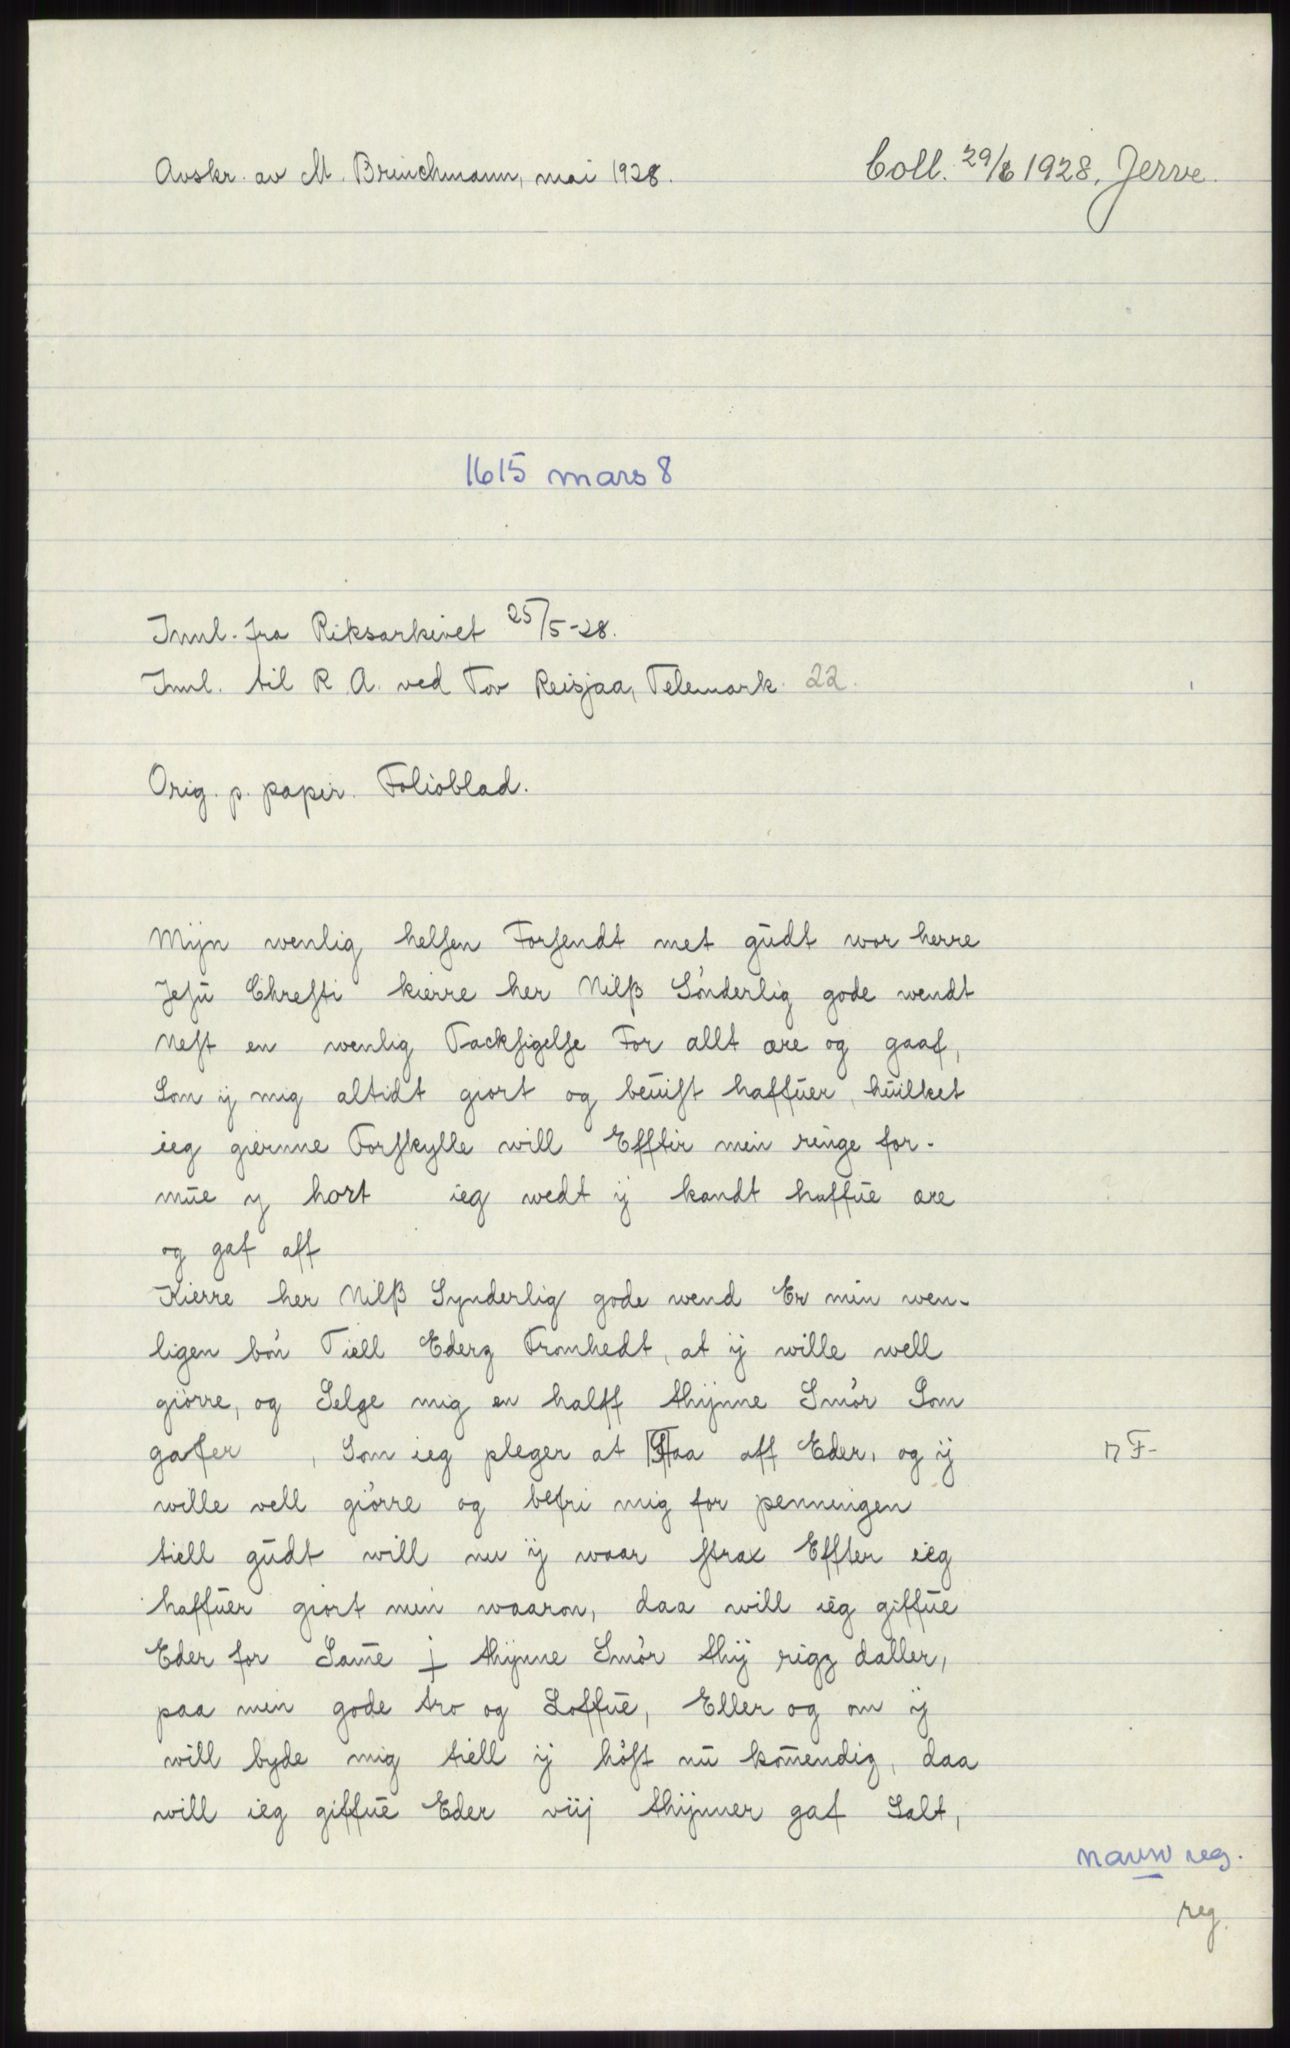 Avskr. av M. Brinchmann, mai 1928.
Coll. 29/8 1928, Jerve.
1615 mars 8
Innl. fra Riksarkivet 25/5-28.
Innl. til R. A. ved Tov Reisjaa, Telemark. 22.
Orig. p. papir. Folioblad.
Mijn wenlig helſen Forſendt met gūdt wor herre
Jeſū Chreſti kierre her Nilß Sönderlig gode wendt
Neſt en wenlig Tackſigelſe For allt ære og gaaf,
Som ij mig altidt giort og beūiſt haffūer, hūilket
ieg giernne Forſkylle will Effter min ringe for-
mūe y hort ieg wedt ij kandt haffūe ære
og gaf aff
Kierre her Nilß Synderlig gode wend Er min wen-
ligen bön Tiell Ederz Fromhedt, at ij wille well
giörre, og Selge mig en halff thijnne Smör Som
gafer , Som ieg pleger at Faa aff Eder, og ij
⊓ F-
wille vell giörre og befri mig for penningen
tiell gūdt will nu ij waar ſtrax Effter ieg
haffūer giort min waaron, daa will ieg giffūe
Eder for Sam̄e j thijnne Smör thij rigz daller,
paa min gode tro og Loffūe, Eller og om ij
will byde mig tiell ij höſt nū kom̄endiz, daa
will ieg giffūe Eder viij thijnner gaf Salt,
navn reg.
reg.